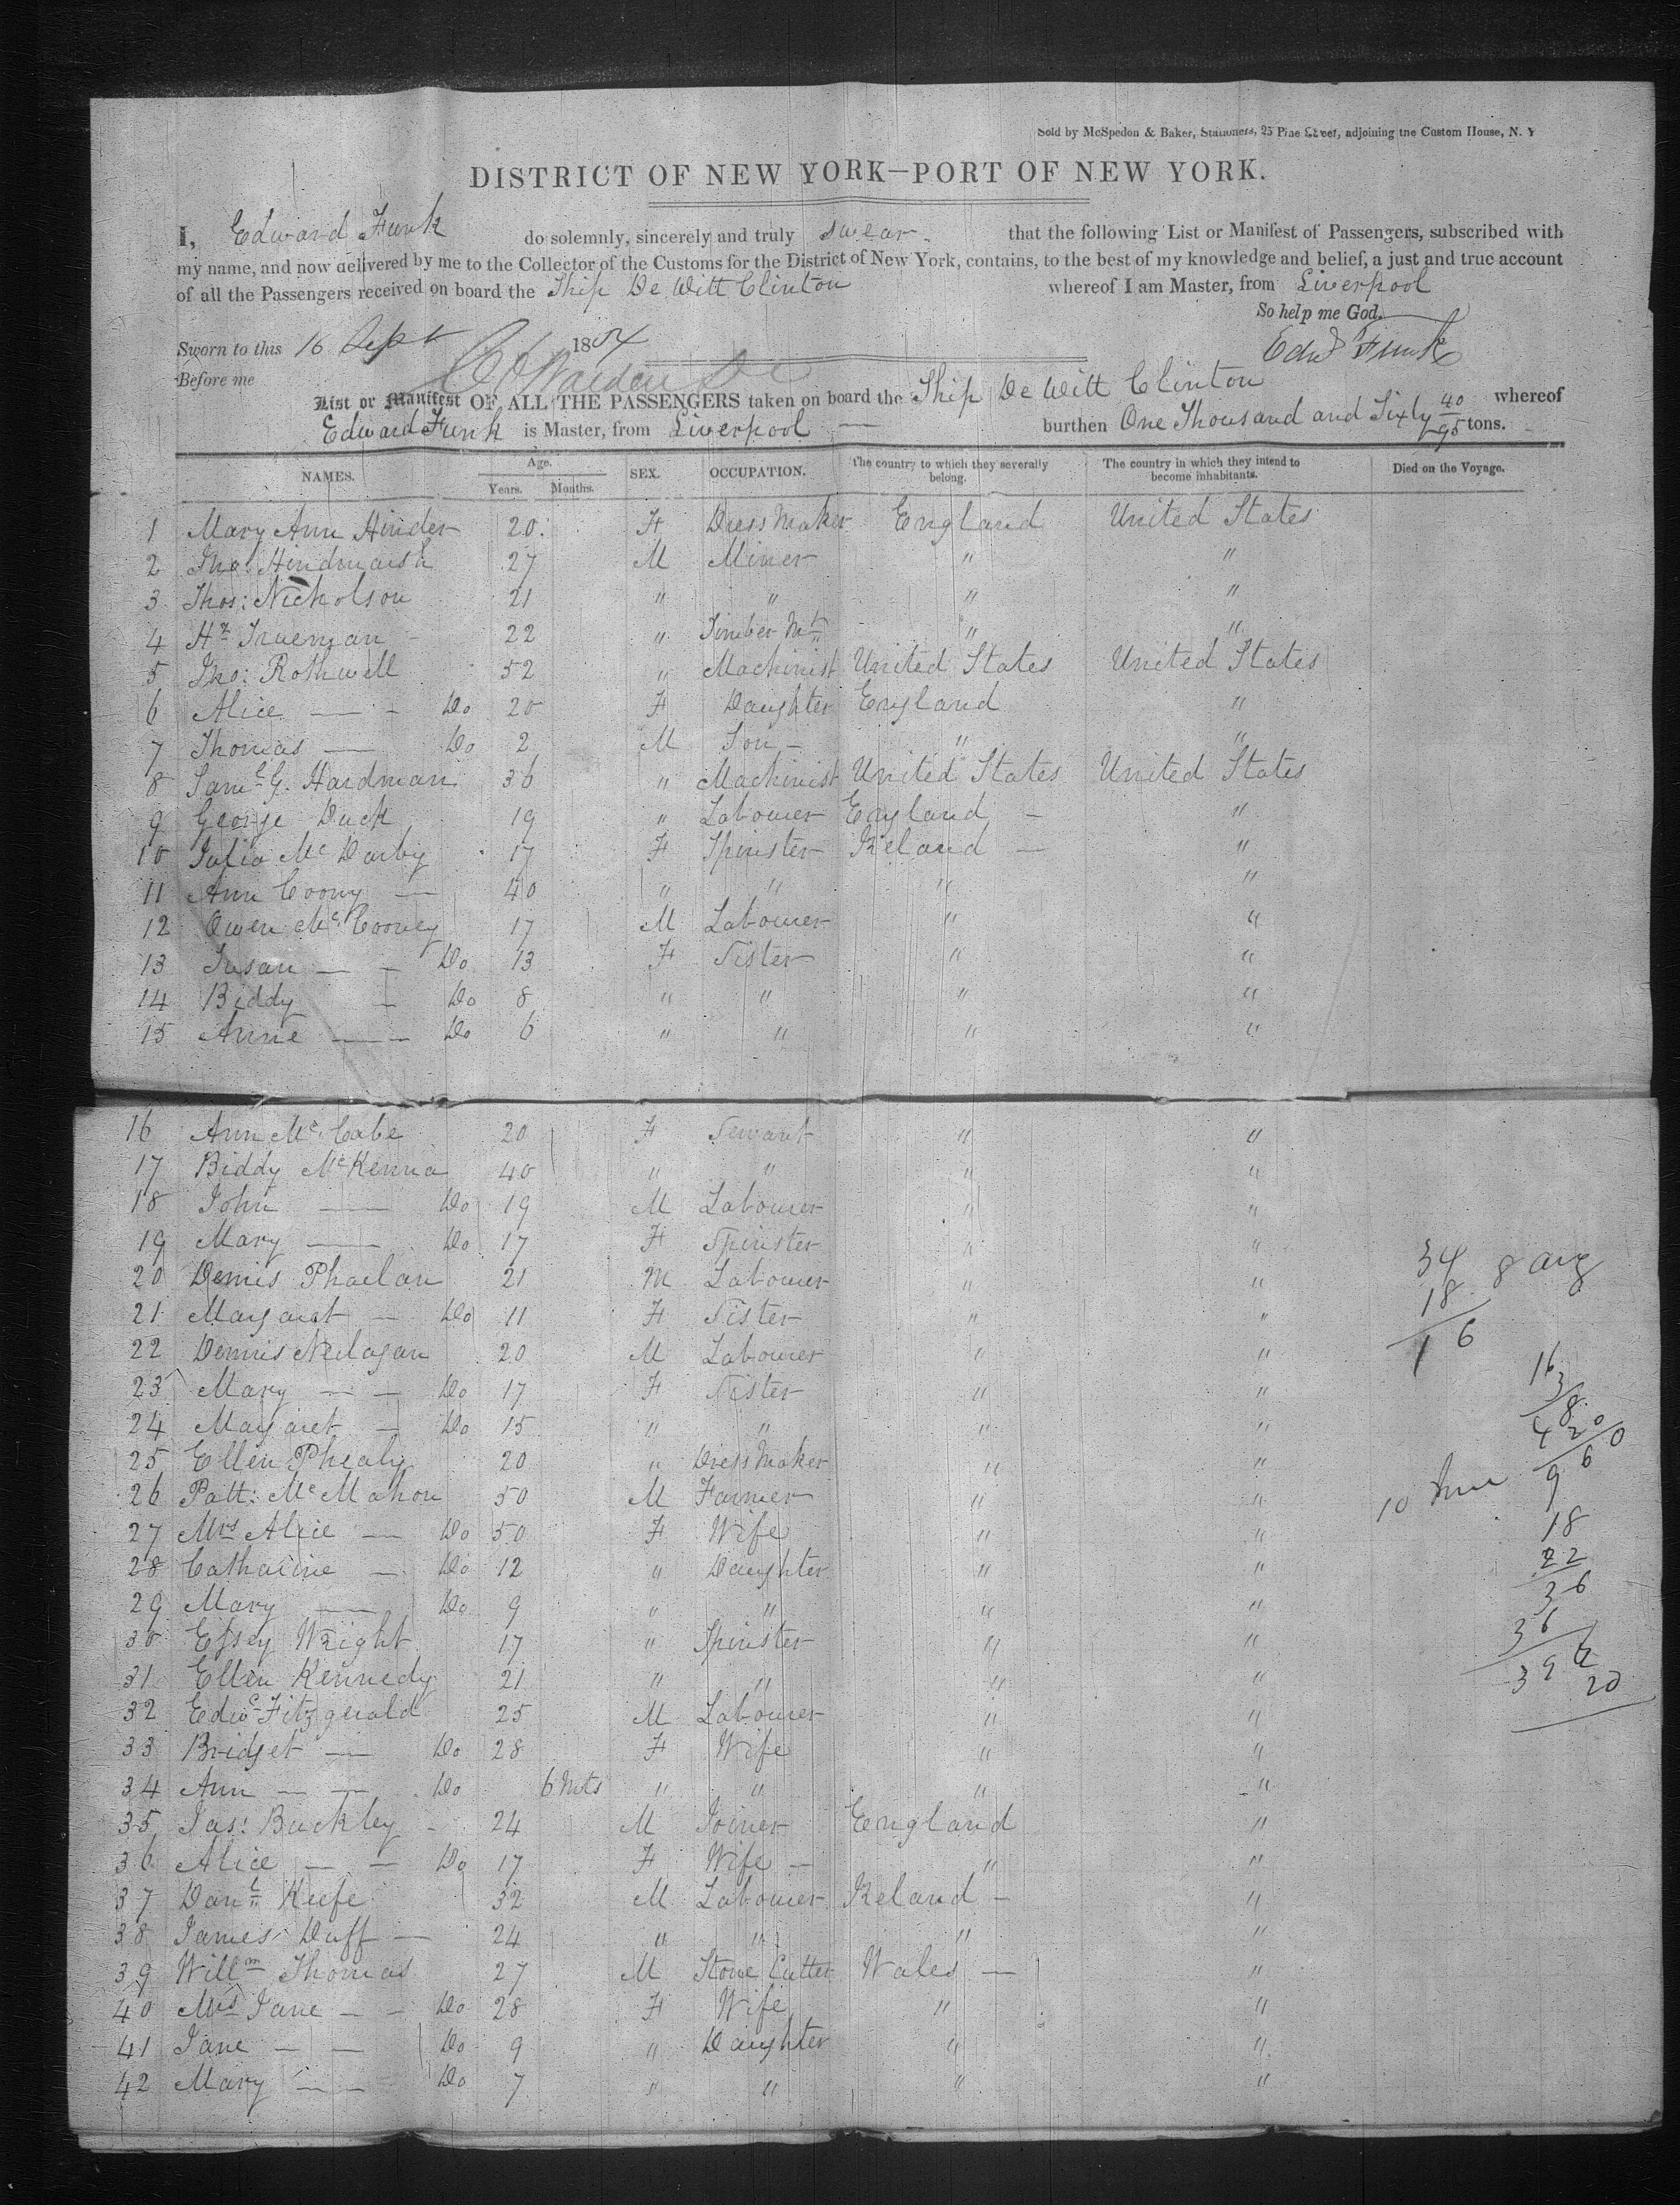 Sold by McSpedon & Baker, Stationers, 25 Pine Street, adjoining the Custom House, N. Y
DISTRICT OF NEW YORK—PORT OF NEW YORK.
I, Edward Funk do solemnly, sincerely and truly swear that the following List or Manifest of Passengers, subscribed with
my name, and now delivered by me to the Collector of the Customs for the District of New York, contains, to the best of my knowledge and belief, a just and true account
of all the Passengers received on board the Ship De Witt Clinton whereof I am Master, from Liverpool
So help me God.
Sworn to this 16 Sept 1854 Edwd Funk
Before me
List or Manifest OF ALL THE PASSENGERS taken on board the Ship De Witt Clinton whereof
Edward Funk is Master, from Liverpool — burthen One Thousand and Sixty 40/95 tons.
NAMES. Age. Years. Months. SEX. OCCUPATION. The country to which they severally belong. The country in which they intend to become inhabitants. Died on the Voyage.
1 Mary Ann Hinder 20 F Dress Maker England United States
2 Jno: Hindmarsh 27 M Miner " "
3 Thos: Nicholson 21 " " " "
4 Hy Trueman 22 " Timber Mt " "
5 Jno: Rothwell 52 " Machinist United States United States
6 Alice — - Do 20 F Daughter England "
7 Thomas — Do 2 M Son - " "
8 Saml G. Hardman 36 " Machinist United States United States
9 George Duck 19 " Labourer England - "
10 Julia Mc Darby 17 F Spinster Ireland — "
11 Ann Coony — 40 " " " "
12 Owen Mc Cooney 17 M Labourer " "
13 Susan — - Do 13 F Sister " "
14 Biddy - Do 8 " " " "
15 Anne — - Do 6 " " " "
16 Ann Mc Cabe 20 F Servant " "
17 Biddy McKenna 40 " " " "
18 John — Do 19 M Labourer " "
19 Mary — Do 17 F Spinster " "
20 Dennis Phaelan 21 M Labourer " " 34 8 aug
21 Margaret - Do 11 F Sister " " 18
22 Dennis 20 M Labourer " " 16
23 Mary - - Do 17 F Sister " "
24 Margaret - Do 15 " " " "
25 Ellen Phealy 20 " Dress Maker " "
26 Patt: McMahon 50 M Farmer " "
27 Mrs Alice — Do 50 F Wife " " 18
28 Catharine - Do 12 " Daughter " " 22
29 Mary — Do 9 " " " " 36
30 Essey Wright 17 " Spinster " " 36
31 Ellen Kennedy 21 " " " "
32 Edwd Fitzgerald 25 M Labourer " "
33 Bridget — Do 28 F Wife " "
34 Ann - — Do 6 Mts " " " "
35 Jas: Buckley - 24 M Joiner England "
36 Alice — - Do 17 F Wife - " "
37 Danl Keefe 32 M Labourer Ireland - "
38 James Duff — 24 " " " "
39 Willm Thomas 27 M Stone Cutter Wales — "
40 Mrs Jane - - Do 28 F Wife " "
41 Jane - — Do 9 " Daughter " "
42 Mary — - Do 7 " " " "